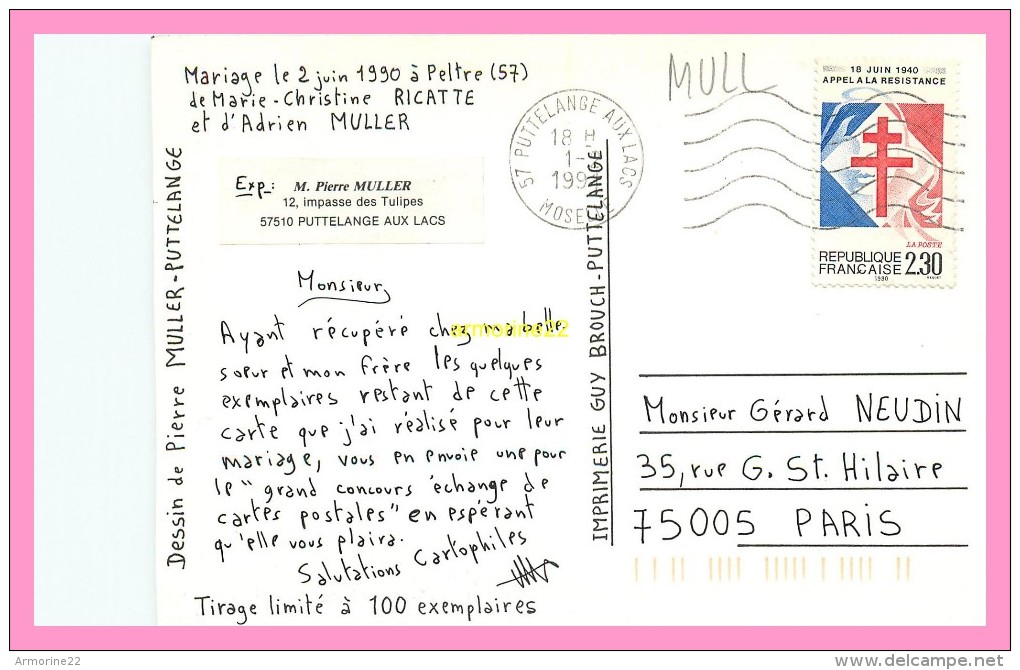 Mariage le 2 juin 1990 à Peltre (57)
de Marie-Christine RICATTE
et d'Adrien MULLER
Exp: M. Pierre MULLER
12, impasse des Tulipes
57510 PUTTELANGE AUX LACS
Dessin de Pierre MULLER-PUTTELANGE
Monsieur,
Ayant récupéré chez ma belle
soeur et mon frère les quelques
exemplaires restant de cette
carte que j'ai réalisé pour leur
mariage, vous en envoie une pour
le "grand concours échange de
cartes postales" en espérant
qu'elle vous plaira.
Salutations Cartophiles
Tirage limité à 100 exemplaires
IMPRIMERIE GUY BROUCH-PUTTELANGE
57 PUTTELANGE AUX LACS
18 H
1-
199
MOSELLE
MULL
18 JUIN 1940
APPEL A LA RESISTANCE
LA POSTE
REPUBLIQUE
FRANÇAISE 2,30
1990
Monsieur Gérard NEUDIN
35, rue G. St. Hilaire
75005 PARIS
armorine22
Armorine22
http://www.delcampe.net